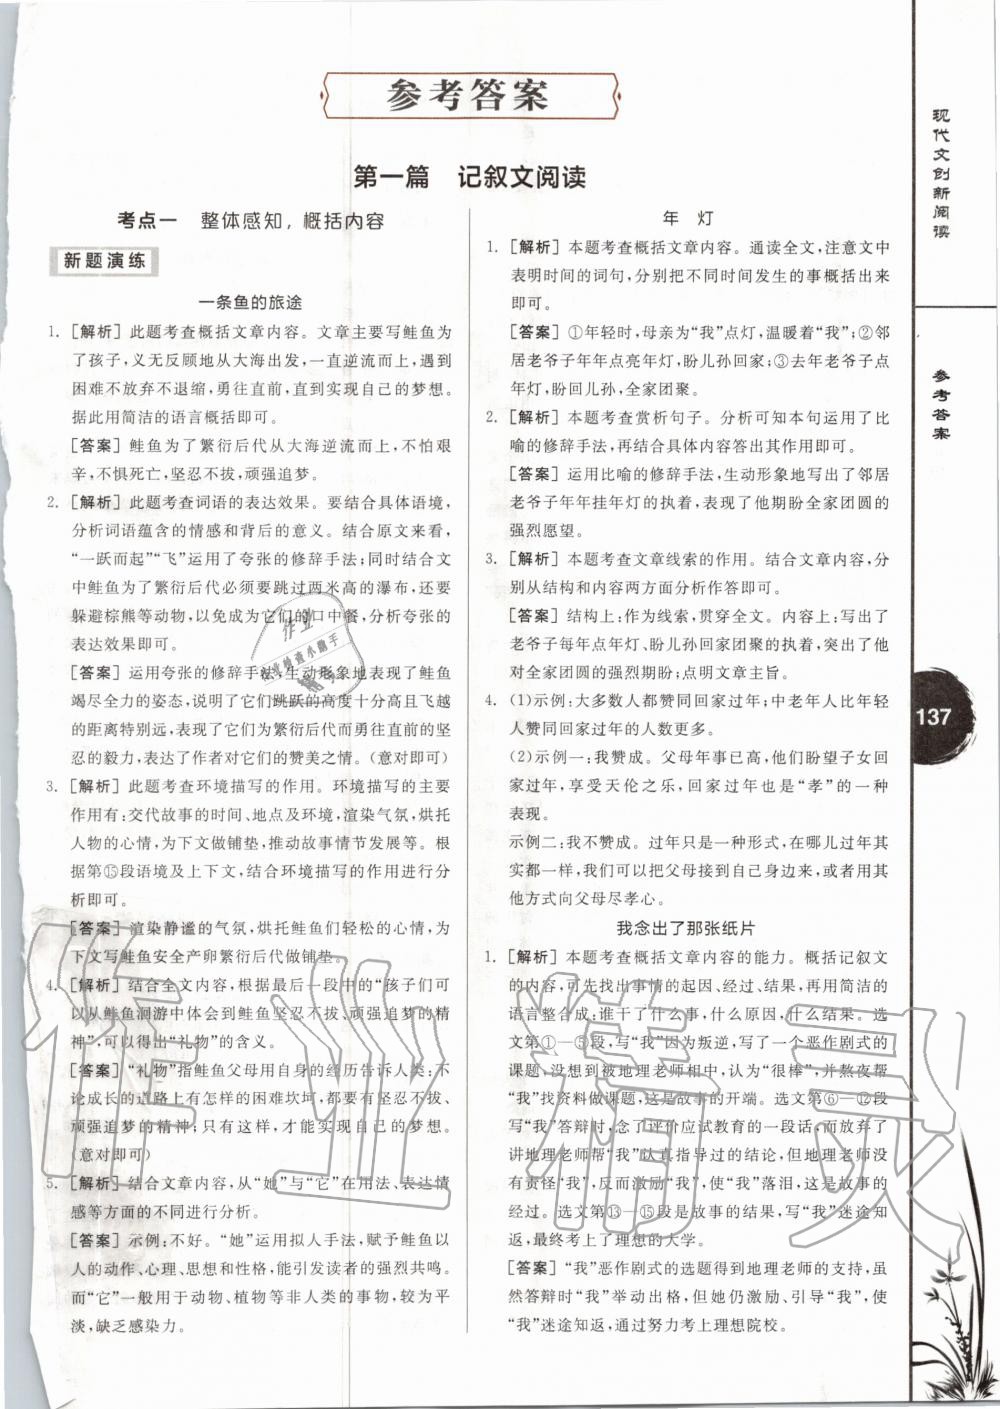 参考答案
第一篇 记叙文阅读
考点一 整体感知，概括内容
新题演练
一条鱼的旅途
1. [解析] 此题考查概括文章内容。文章主要写鲑鱼为
了孩子，义无反顾地从大海出发，一直逆流而上，遇到
困难不放弃不退缩，勇往直前，直到实现自己的梦想。
据此用简洁的语言概括即可。
[答案] 鲑鱼为了繁衍后代从大海逆流而上，不怕艰
辛，不惧死亡，坚忍不拔，顽强追梦。
2. [解析] 此题考查词语的表达效果。要结合具体语境，
分析词语蕴含的情感和背后的意义。结合原文来看，
“一跃而起”“飞”运用了夸张的修辞手法；同时结合文
中鲑鱼为了繁衍后代必须要跳过两米高的瀑布，还要
躲避棕熊等动物，以免成为它们的口中餐，分析夸张的
表达效果即可。
[答案] 运用夸张的修辞手法，生动形象地表现了鲑鱼
竭尽全力的姿态，说明了它们跳跃的高度十分高且飞越
的距离特别远，表现出了鲑鱼敢于面对困难的勇气、坚
忍的毅力，表达了作者对它们的赞美之情。（意对即可）
3. [解析] 此题考查环境描写的作用。环境描写的主要
作用有：交代故事的时间、地点及环境，渲染气氛，烘托
人物的心情，为下文做铺垫，推动故事情节发展等。根
据第⑮段语境及上下文，结合环境描写的作用进行分
析即可。
[答案] 渲染静谧的气氛，烘托鲑鱼们轻松的心情，为
下文写鲑鱼安全产卵繁衍后代做铺垫。
4. [解析] 结合全文内容，根据最后一段中的“孩子们可
以从鲑鱼洄游中体会到鲑鱼坚忍不拔、顽强追梦的精
神”，可以得出“礼物”的含义。
[答案] “礼物”指鲑鱼父母用自身的经历告诉人类：不
论成长的道路上有怎样的困难坎坷，都要有坚忍不拔、
顽强追梦的精神；只有这样，才能让生命更有意义。
（意对即可）
5. [解析] 结合文章内容，从“她”与“它”在用法、表达情
感等方面的不同进行分析。
[答案] 示例：不好。“她”运用拟人手法，赋予鲑鱼以
人的动作、心理、思想和性格，能引发读者的强烈共鸣。
而“它”一般用于动物、植物等非人类的事物，较为平
淡，缺乏感染力。
年 灯
1. [解析] 本题考查概括文章内容。通读全文，注意文中
表明时间的词句，分别把不同时间发生的事概括出来
即可。
[答案] ①年轻时，母亲为“我”点灯，温暖着“我”；②邻
居老爷子年年点亮年灯，盼儿孙回家；③去年老爷子点
年灯，盼回儿孙，全家团聚。
2. [解析] 本题考查赏析句子。分析可知本句运用了比
喻的修辞手法，再结合具体内容答出其作用即可。
[答案] 运用比喻的修辞手法，生动形象地写出了邻居
老爷子年年挂年灯的执着，表现了他期盼全家团圆的
强烈愿望。
3. [解析] 本题考查文章线索的作用。结合文章内容，分
别从结构和内容两方面分析作答即可。
[答案] 结构上：作为线索，贯穿全文。内容上：写出了
老爷子每年点年灯、盼儿孙回家团聚的执着，突出了他
对全家团圆的强烈期盼；点明文章主旨。
4. (1)示例：大多数人都赞同回家过年；中老年人比年轻
人赞同回家过年的人数更多。
(2)示例一：我赞成。父母年事已高，他们盼望子女回
家过年，享受天伦之乐，回家过年也是“孝”的一种
表现。
示例二：我不赞成。过年只是一种形式，在哪儿过年其
实都一样，我们可以把父母接到自己身边来，或者用其
他方式向父母尽孝心。
我念出了那张纸片
1. [解析] 本题考查概括文章内容的能力。概括记叙文
的内容，可先找出事情的起因、经过、结果，再用简洁的
语言整合成：谁干了什么事，什么原因，什么结果。选
文第①—⑤段，写“我”因为叛逆，写了一个恶作剧式的
课题，没想到被地理老师相中，认为“很棒”，并熬夜帮
“我”找资料做课题，这是故事的开端。选文第⑥—⑫段
写“我”答辩时，念了评价应试教育的一段话，而放弃了
讲地理老师帮“我”认真指导过的结论，但地理老师没
有责怪“我”，反而激励“我”，使“我”落泪，这是故事的
发展、高潮。选文第⑬—⑮段是故事的结果，写“我”迷途知
返，最终考上了理想的大学。
[答案] “我”恶作剧式的选题得到地理老师的支持，虽
然在答辩时“我”举动出格，但她仍激励、引导“我”，使
“我”迷途知返，通过努力考上理想院校。
现代文创新阅读
参考答案
137
作业精灵